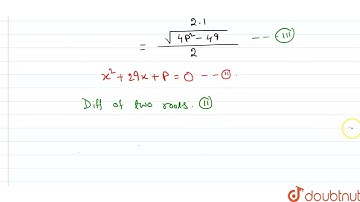 2.1
= √4P² - 49 / 2 -- (III)
x² + 29x + P = 0 -- (II).
Diff of two roots. (II)
doubtnut